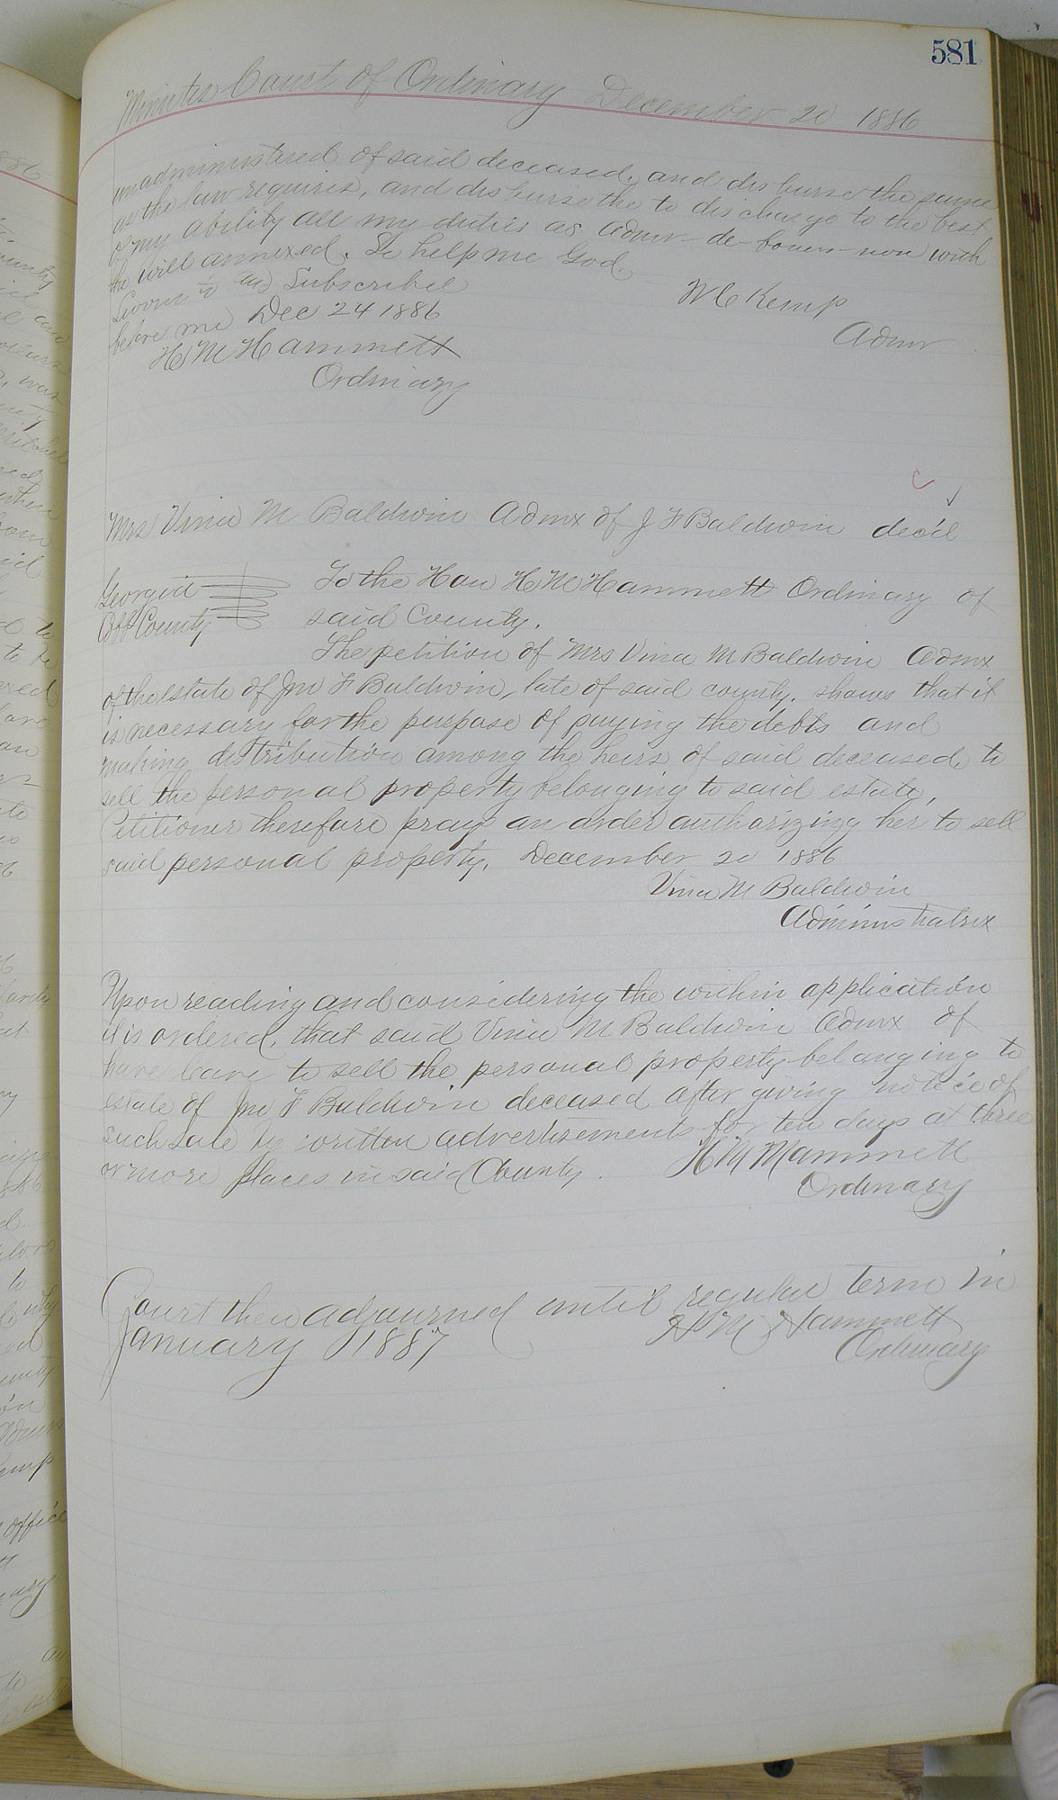 581
Minutes Court of Ordinary December 20 1886
unadministered of said deceased, and disburse the same
as the law requires, and disburse the to discharge to the best
of my ability all my duties as Admr de bonis non with
the will annexed. So help me God.
Sworn to and Subscribed
before me Dec 24 1886
W C Kemp
Admr
H M Hammett
Ordinary
Mrs Vina M Baldwin Admx of J F Baldwin dec'd
Georgia
Cobb County
To the Hon H M Hammett Ordinary of
said County.
The petition of Mrs Vina M Baldwin Admx
of the estate of Jno F Baldwin, late of said county, shows that it
is necessary for the purpose of paying the debts and
making distribution among the heirs of said deceased, to
sell the personal property belonging to said estate,
Petitioner therefore prays an order authorizing her to sell
said personal property. December 20 1886
Vina M Baldwin
Administratrix
Upon reading and considering the within application
it is ordered, that said Vina M Baldwin Admx of
have leave to sell the personal property belonging to
estate of Jno F Baldwin deceased after giving notice of
such sale by written advertisements for ten days at three
or more places in said County.
H M Hammett
Ordinary
Court then adjourned until regular term in
January 1887
H M Hammett
Ordinary